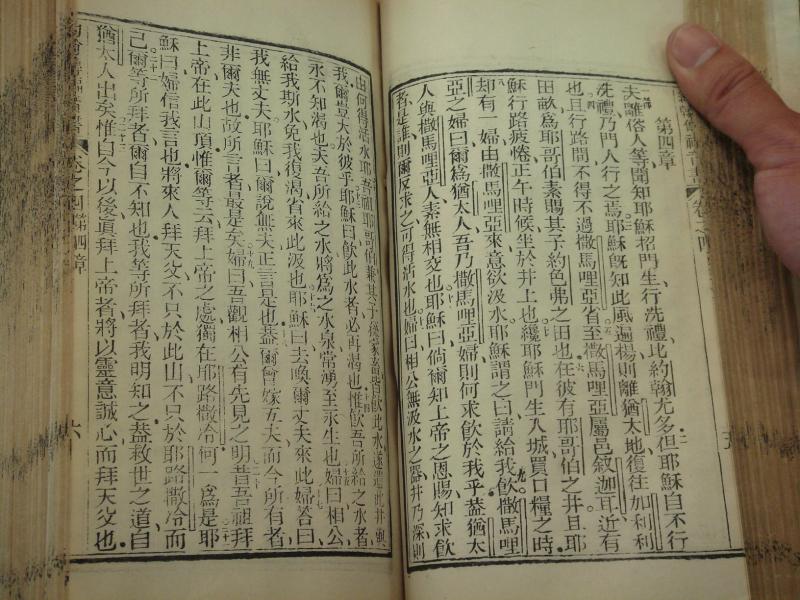 卷之四
第四章
夫離俗人等聞知耶穌招門生行洗禮比約翰尤多但耶穌自不行
洗禮乃門人行之焉耶穌旣知此風遍揚則離猶太地復往加利利
也且行路間不得不過撒馬哩亞省至撒馬哩亞屬邑敘迦耳近有
田畝爲耶哥伯素賜其子約色弗之田也在彼有耶哥伯之井且耶
穌行路疲惓正午時候坐於井上也纔耶穌門生入城買口糧之時
却有一婦由撒馬哩亞來意欲汲水耶穌謂之曰請給我飲撒馬哩
亞之婦曰爾爲猶太人吾乃撒馬哩亞婦則何求飲於我乎蓋猶太
人與撒馬哩亞人素無相交也耶穌曰倘爾知上帝之恩賜知求飲
者是誰則爾反求之可得活水也婦曰相公無汲水之器井乃深則
由何得活水耶吾祖耶哥伯兼其子孫家畜皆飲此水遂遺此井
我爾豈大於彼乎耶穌曰飲此水者必再渴也惟飲吾所給之水者
永不知渴也夫吾所給之水將爲之水泉常湧至永生也婦曰相公
給我斯水免我復渴省來此汲也耶穌曰去喚爾丈夫來此婦答曰
我無丈夫耶穌曰爾說無夫正言是也蓋爾曾嫁五夫而今所有者
非爾夫也故所言者最是矣婦曰吾觀相公有先見之明昔吾祖拜
上帝在此山項惟爾等云拜上帝之處獨在耶路撒冷何一爲是耶
穌曰婦信我言也將來人拜天父不只於此山不只於耶路撒冷而
己爾等所拜者爾自不知也我等所拜者我明知之蓋救世之道自
猶太人出矣惟自今以後眞拜上帝者將以靈意誠心而拜天父也
卷之四 第四章
六